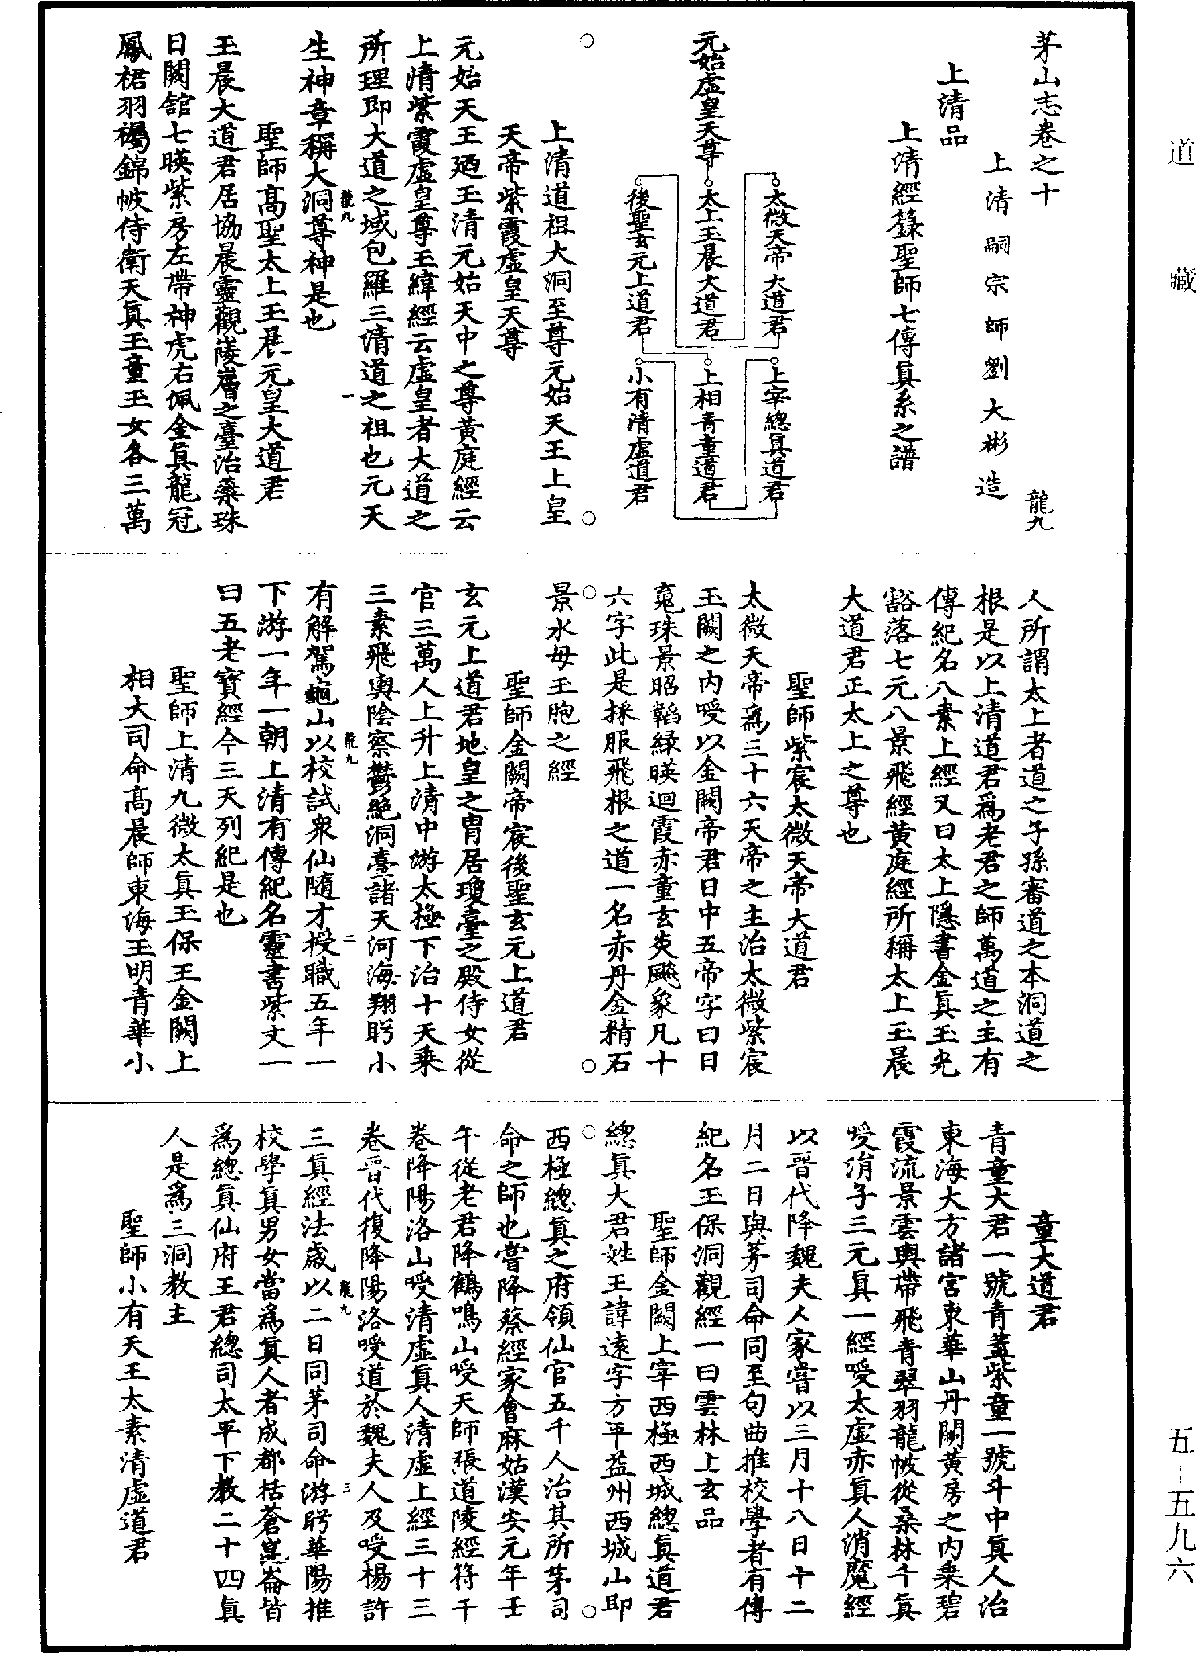 道藏
五-五九六
茅山志卷之十
龍九
上清嗣宗師劉大彬造
上清品
上清經籙聖師七傳真系之譜
太微天帝大道君
上宰總真道君
元始虛皇天尊
太上玉晨大道君
上相青童道君
後聖玄元上道君
小有清虛道君
上清道祖大洞至尊元始天王上皇
天帝紫霞虛皇天尊
元始天王廼玉清元始天中之尊黃庭經云
上清紫霞虛皇尊玉緯經云虛皇者大道之
所理即大道之域包羅三清道之祖也元天
龍九
一
生神章稱大洞尊神是也
聖師高聖太上玉晨元皇大道君
玉晨大道君居協晨靈觀崚層之臺治蘂珠
日闕館七暎紫房左帶神虎右佩金真龍冠
鳳裙羽褐錦帔侍衛天真玉童玉女各三萬
人所謂太上者道之子孫審道之本洞道之
根是以上清道君為老君之師萬道之主有
傳紀名八素上經又曰太上隱書金真玉光
豁落七元八景飛經黃庭經所稱太上玉晨
大道君正太上之尊也
聖師紫宸太微天帝大道君
太微天帝為三十六天帝之主治太微紫宸
玉闕之內受以金闕帝君日中五帝字曰日
䰟珠景昭韜綠暎迴霞赤童玄炎飈象凡十
六字此是採服飛根之道一名赤丹金精石
景水母玉胞之經
聖師金闕帝宸後聖玄元上道君
玄元上道君地皇之胄居瓊臺之殿侍女從
官三萬人上升上清中游太極下治十天乘
三素飛輿陰察鬱絕洞臺諸天河海翔眄小
龍九
二
有解駕龜山以校試衆仙隨才授職五年一
下游一年一朝上清有傳紀名靈書紫文一
曰五老寶經今三天列紀是也
聖師上清九微太真玉保王金闕上
相大司命高晨師東海王明青華小
童大道君
青童大君一號青蓋紫童一號斗中真人治
東海大方諸宮東華山丹闕黃房之內乘碧
霞流景雲輿帶飛青翠羽龍帔從桑林千真
受涓子三元真一經受太虛赤真人消魔經
以晉代降魏夫人家嘗以三月十八日十二
月二日與茅司命同至句曲推校學者有傳
紀名玉保洞觀經一曰雲林上玄品
聖師金闕上宰西極西城總真道君
總真大君姓王諱遠字方平益州西城山即
西極總真之府領仙官五千人治其所茅司
命之師也嘗降蔡經家會麻姑漢安元年壬
午從老君降鶴鳴山受天師張道陵經符千
卷降陽洛山受清虛真人清虛上經三十三
卷晉代復降陽洛受道於魏夫人及受楊許
龍九
三
三真經法歲以二日同茅司命游眄華陽推
校學真男女當為真人者成都括蒼崑崙皆
為總真仙府王君總司太平下教二十四真
人是為三洞教主
聖師小有天王太素清虛道君